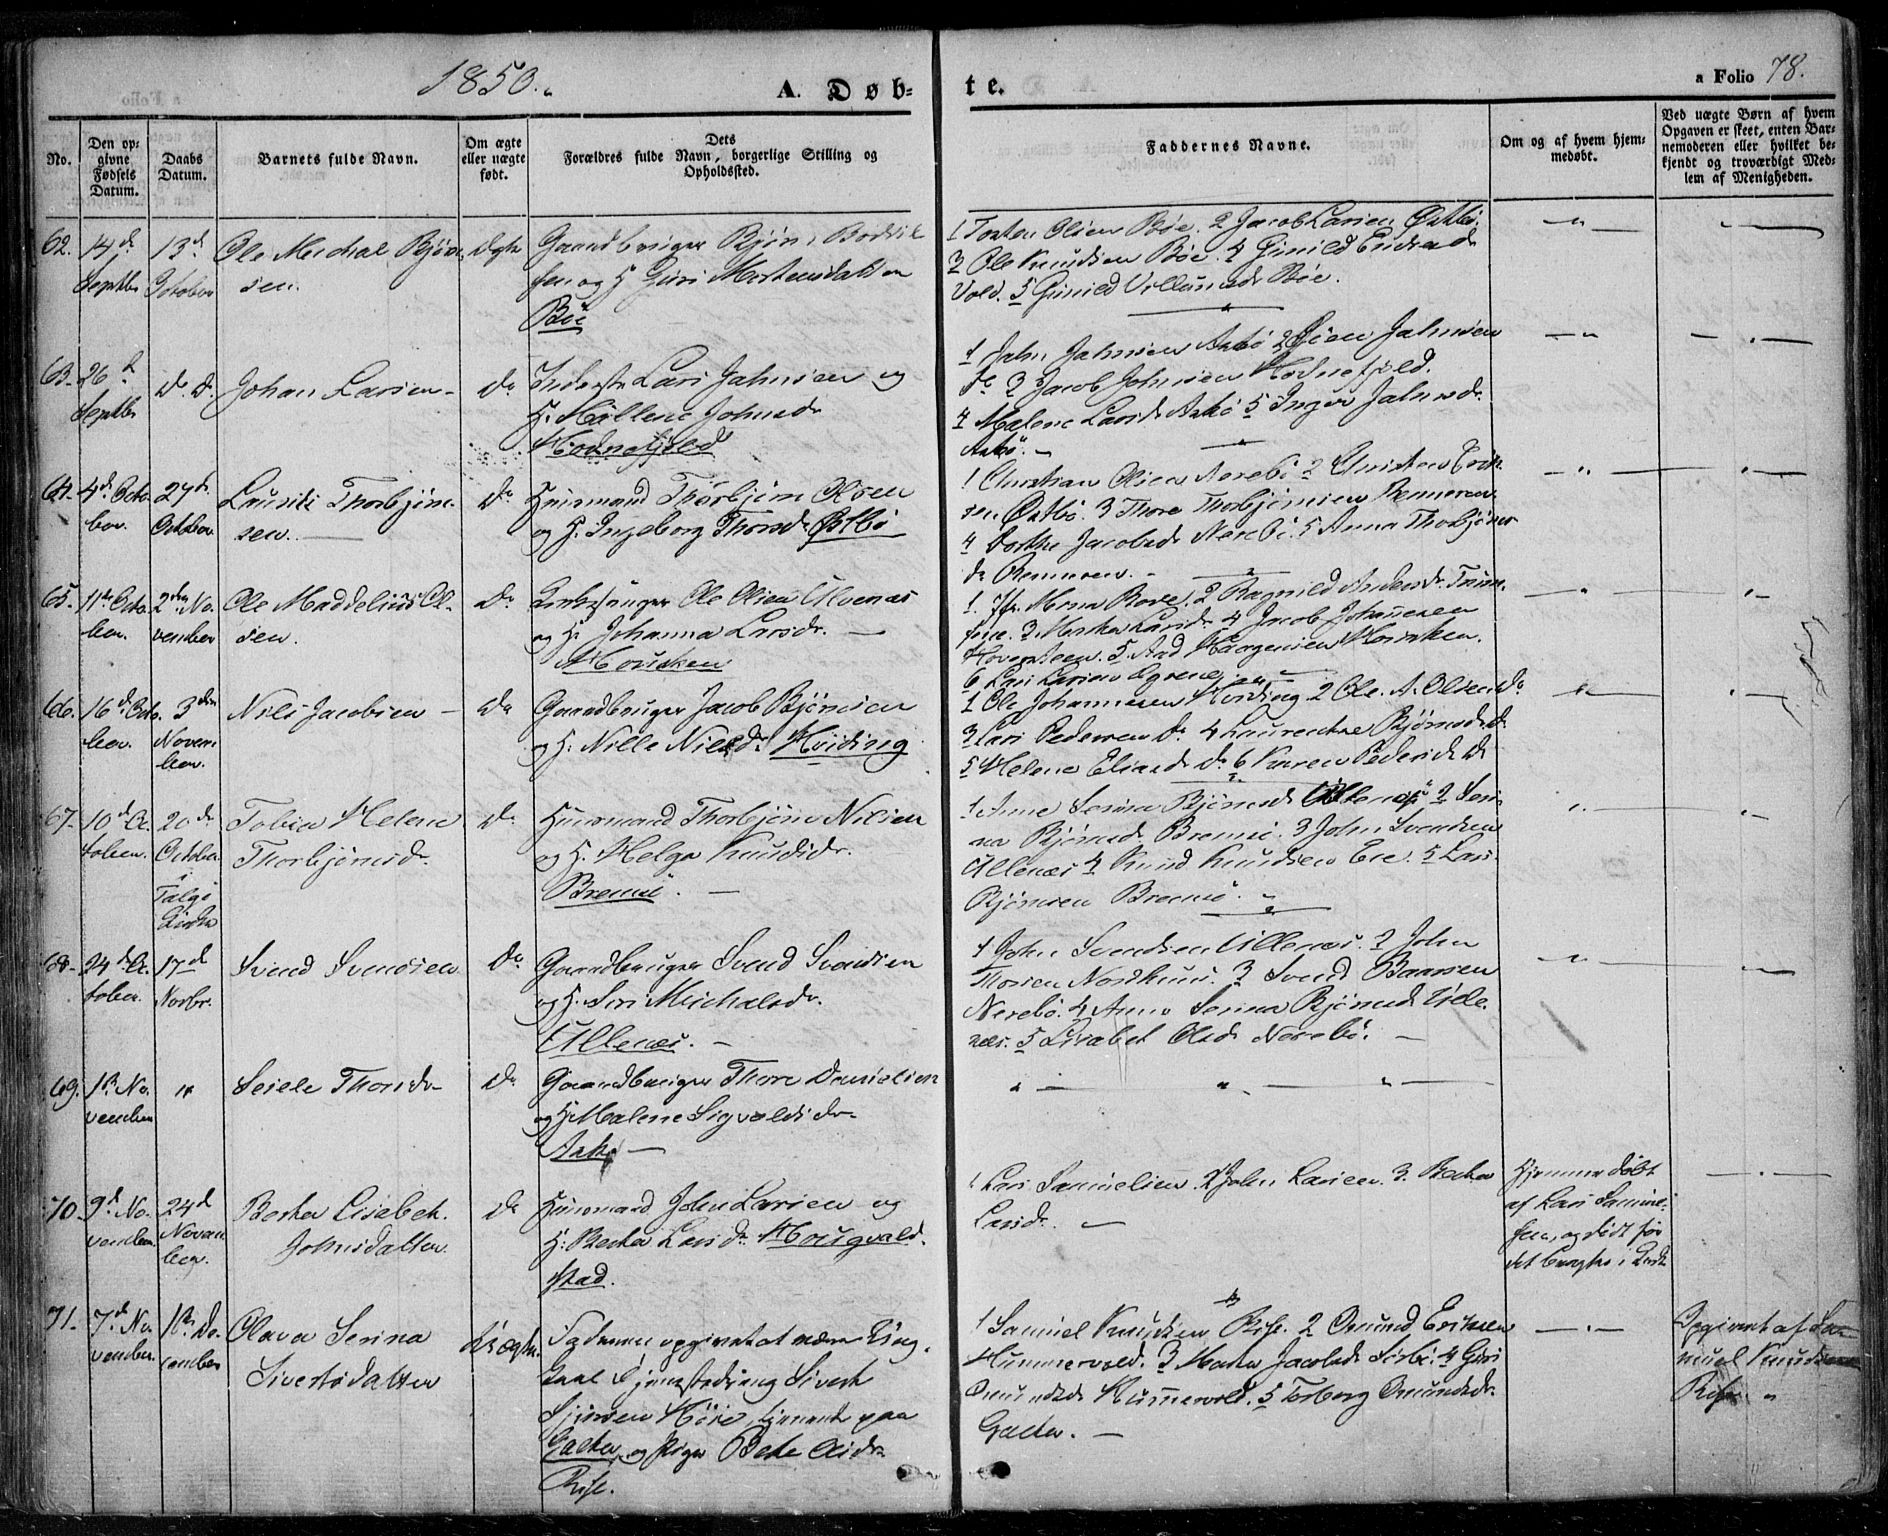 1850.
A. Døb-
te.
a Folio 78.
No.
Den op-
givne
Fødsels
Datum.
Daabs
Datum.
Barnets fulde Navn.
Om ægte
eller uægte
født.
Dets
Forældres fulde Navn, borgerlige Stilling og
Opholdssted.
Faddernes Navne.
Om og af hvem hjem-
medøbt.
Ved uægte Børn af hvem
Opgaven er skeet, enten Bar-
nemoderen eller hvilket be-
kjendt og troværdigt Med-
lem af Menigheden.
62.
14d
Septbr
13d
October
Ole Michal Bjørn
sen.
Ægte
Gaardbruger Bjørn
sen og H. Guri Mortensdatter
Bøe
1 Tosten Olsen Bøe. 2 Jacob Larsen Østbø
3 Ole Knudsen Bøe. 4 Gunild
Vold. 5 Gunild Bøe.
63.
26d
Septbr
D. D.
Johan Larsen
Do
Inderste Lars Jahnsen og
H. Mallene Johnsdr
Hodnefjeld
1 Jahn Jahnsen Askø 2 Jahnsen
do 3 Jacob Johnsen Hodnefjeld.
4 Malene Larsdr Askø 5 Inger Jahnsdr
Askø.
64.
4d Octo
ber.
27d
October
Laurits Thorbjørn-
sen.
Do
Huusmand Thorbjørn Olsen
og H. Ingeborg Thorsdr Østbø
1 Christian Olsen Nærebø 2 Christen Erik
sen Østbø. 3 Thore Thorbjørnsen Rennesøen
4 Dorthe Jacobsdr Nærebø. 5 Anna Thorbjørns
dr Rennesøen.
65.
11te Octo
ber.
2den No-
vember
Ole Maddelius Ol-
sen.
Do
Kirkesanger Ole Olsen Ulvenæs
og H. Johanna Larsdr.
Housken
1. Jfr. 2 Ragnild Andersdr
3 Martha Larsdr 4 Jacob Johannesen
5. Aad Housken.
6 Lars Larsen
66.
16d Octo
ber.
3die
Novem
ber.
Nils Jacobsen
Do
Gaardbruger Jacob Bjørnsen
og H. Nille Nilsdr Hviding
1 Ole Johannesen Hviding 2 Ole A. Olsen Do
3 Lars Pedersen Do 4 Laurentse Bjørnsdr Do
5 Helene Eliasdr Do 6 Karen Pedersdr Do
67.
10d Oc
tober.
20d
October
i
Talgø
Kirke
Tobia Helene
Thorbjørnsdr.
Do
Huusmand Thorbjørn Nilsen
og H. Helga Knudsdr.
Bremsø.
1 Anne Serina Bjørnsdr Ullenæs 2 Seri
na Bjørnsdr Bremsø. 3 John Svendsen
Ullenæs 4 Knud Knudsen Eee. 5 Lars
Bjørnsen Bremsø.
68.
24d Oc
tober.
17d
Novbr.
Svend Svendsen
Do
Gaardbruger Svend Svendsen
og H. Siri Michalsdr.
Ullenæs.
1 John Svendsen Ullenæs. 2 John
Thorsen Nordhuus. 3 Svend Baarsen
Nærebø. 4 Anne Serina Bjørnsdr Ulle
næs. 5 Lisabet Olsdr Nærebø.
69.
1ste No-
vember
"
Seiele Thorsdr
Do
Gaardbruger Thore Danielsen
og H. Malene Sigvaldsdr
Askø
70.
9d No-
vember.
24d
Novem
ber.
Berta Lisabet
Johnsdatter.
Do
Huusmand John Larsen og
H. Berta Larsdr Hougvald-
stad.
1 Lars Samuelsen. 2 John Larsen. 3. Berta
Larsdr.
Hjemmedøbt
af Lars Samuel-
sen, og død før
det bragtes i Kirke
71.
7d No-
vember.
1ste De-
cember
Olava Serina
Sivertsdatter
Uægte.
Faderen opgivet at være Ung-
karl Sivert
Høie, tjenende paa
Galta, og Pigen Berte Olsdr
Rise.
1 Samuel Knudsen Rise. 2 Omund Eriksen
Hummervold. 3 Marta Jacobsdr Sørbø. 4 Guri
Omundsdr Hummervold. 5 Torborg Omundsdr
Galta.
Opgivet af Sa-
muel Knudsen
Rise